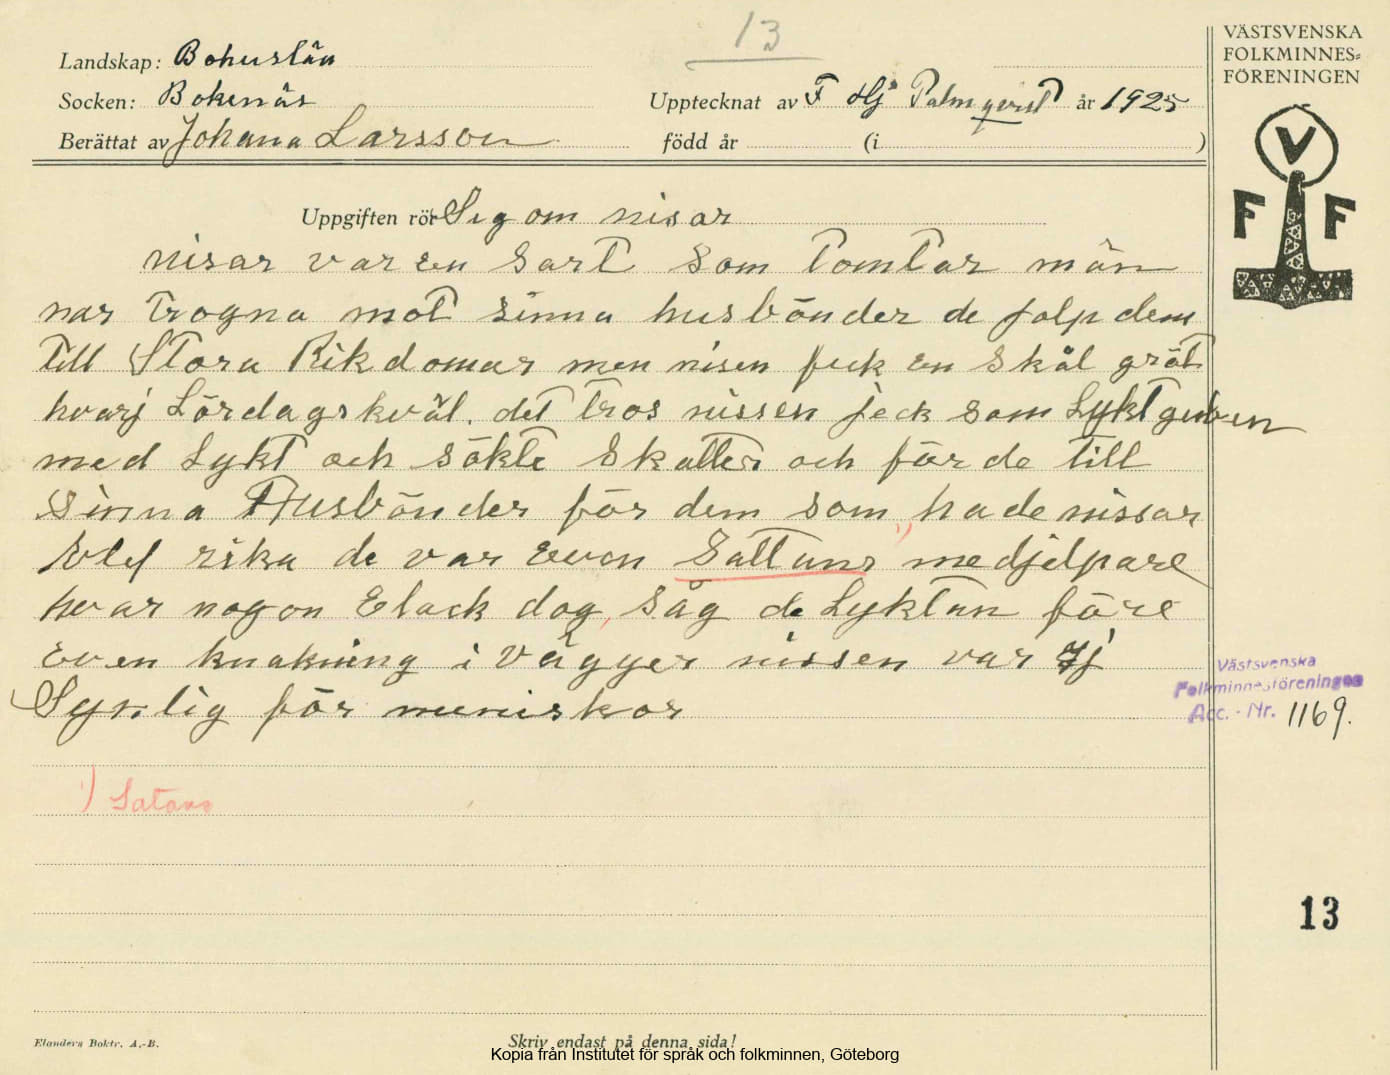 13
VÄSTSVENSKA
FOLKMINNES=
FÖRENINGEN
Landskap: Bohuslän
Socken: Bokenäs
Upptecknat av F Hj Palmqvist år 1925
Berättat av Johana Larsson
född år (i )
V
F F
Uppgiften rör Seg om nisar
nisar var en Sart som Tomtar män
nar trogna mot sinna husbönder de jalp dem
till Stora Rikdomar men nisen feck en skål gröt
hvarj Lördagskväl. det tros nissen jeck som Lyktguben
med Lykt och sökte Skatter och förde till
sinna Husbönder för dem som hade nissar
blef rika de var even Sattans 1) medjelpare
hvar nogon Elack dog, såg de Lyktan före
even knakning i Vägger nissen var Ej
Synlig för meniskor
Västsvenska
Folkminnesföreningen
Acc. - Nr. 1169.
1) Satans
13
Elanders Boktr. A.-B.
Skriv endast på denna sida!
Kopia från Institutet för språk och folkminnen, Göteborg